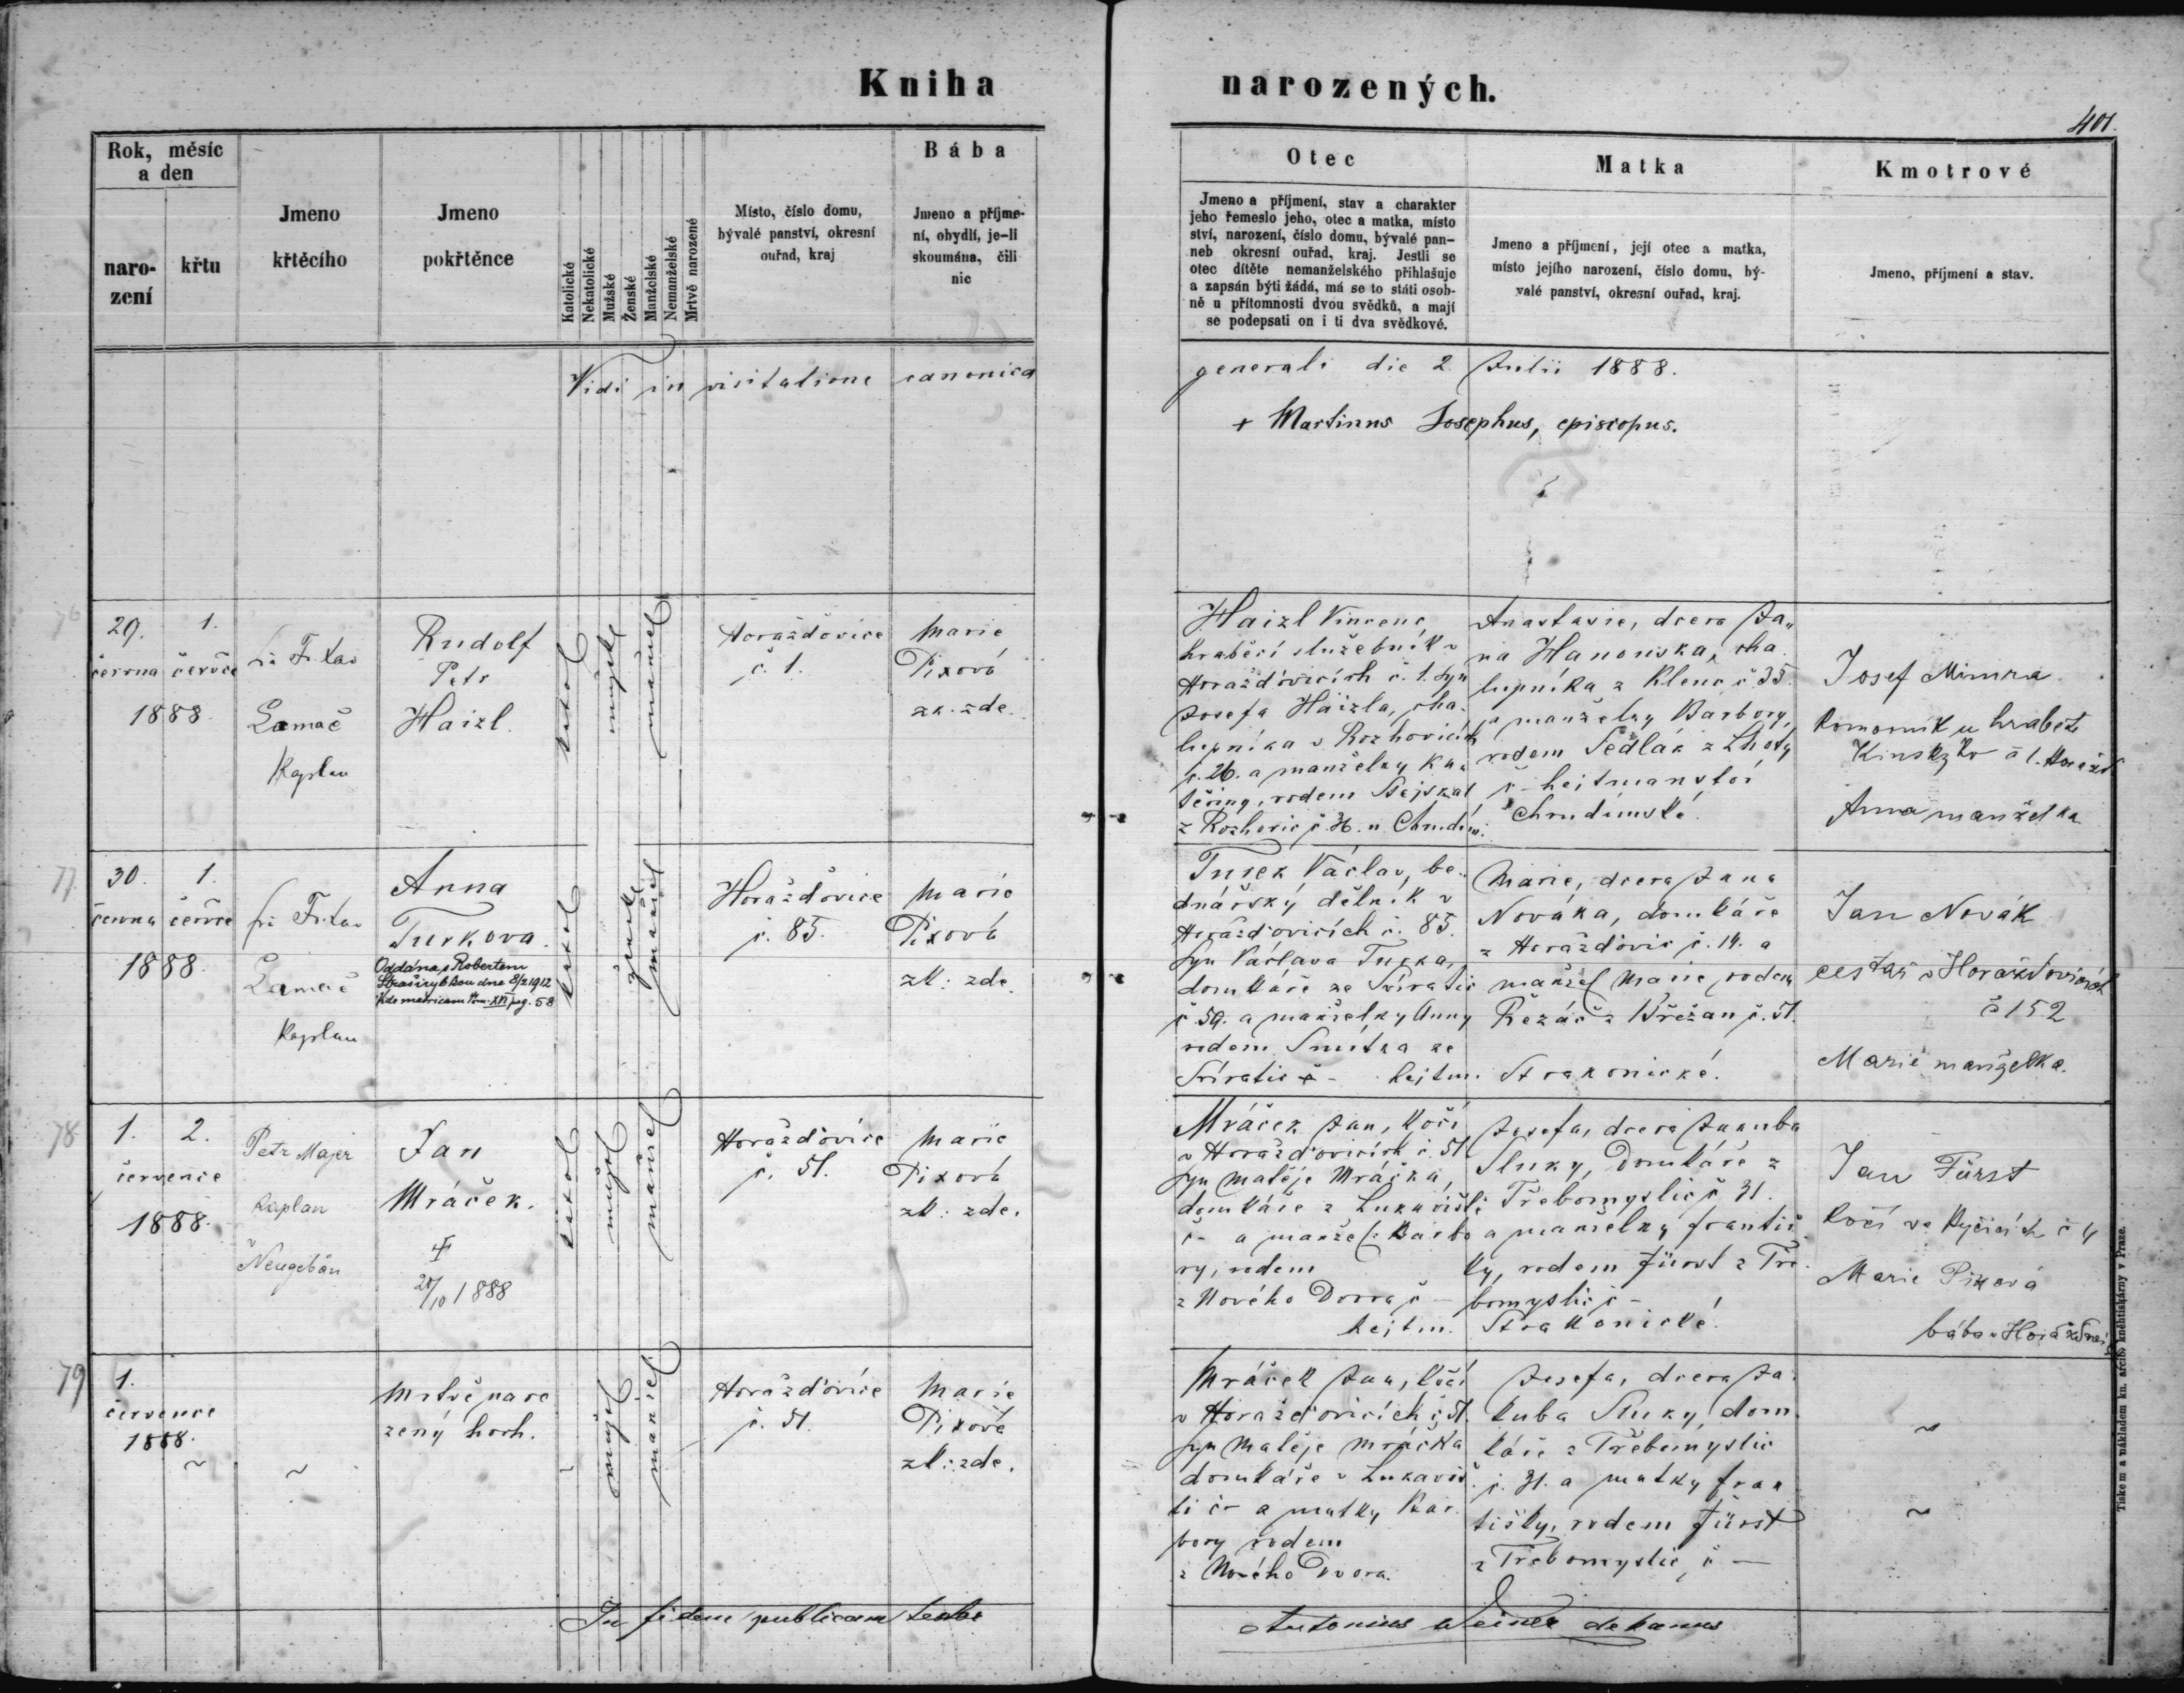 Kniha narozených.
401.
Rok, měsíc
a den
naro-
zení
křtu
Jmeno
křtěcího
Jmeno
pokřtěnce
Katolické
Nekatolické
Mužské
Ženské
Manželské
Nemanželské
Mrtvě narozené
Místo, číslo domu,
bývalé panství, okresní
ouřad, kraj
Bába
Jmeno a příjme-
ní, obydlí, je-li
skoumána, čili
nic
Otec
Jmeno a příjmení, stav a charakter
jeho řemeslo jeho, otec a matka, místo
ství, narození, číslo domu, bývalé pan-
neb okresní ouřad, kraj. Jestli se
otec dítěte nemanželského přihlašuje
a zapsán býti žádá, má se to státi osob-
ně u přítomnosti dvou svědků, a mají
se podepsati on i ti dva svědkové.
Matka
Jmeno a příjmení, její otec a matka,
místo jejího narození, číslo domu, bý-
valé panství, okresní ouřad, kraj.
Kmotrové
Jmeno, příjmení a stav.
Vidi in visitatione canonica
generali die 2 Julii 1888.
+ Martinus Josephus, episcopus.
76
29. 1.
června červce
1888.
Lamač
Kaplan
Rudolf
Petr
Haizl.
katol
mužské
manžel
Horažďovice
č. 1.
Marie
Pixová
zk. zde.
Haizl Vincenc,
hraběcí služebník v
Horažďovicích č. 1. syn
Josefa Haizla, cha-
lupníka v Rozhovicích
č. 26. a manželky Ka-
teřiny, rodem Stejskal
z Rozhovic č. 36. u Chrudim.
Anastasie, dcera Ja-
na Hanouska, cha-
lupníka z Klenc č. 35.
a manželky Barbory,
rodem Sedlák z Lhoty
č - hejtmanství
Chrudimské.
Josef Mimra
komorník u hraběte
Kinského č 1. Horažď
Anna manželka
77.
30. 1.
června červce
1888.
Lamač
Kaplan
Anna
Turkova.
Oddána s Robertem
Straširybkou dne 8/2 1912
Vide matricam Tom. XVI pag. 58
katol
žensk
manžel
Horažďovice
č. 85.
Marie
Pixová
zk: zde.
Turek Václav, be-
dnářský dělník v
Horažďovicích č. 85.
syn Václava Turka,
domkáře ze Svíratic
č 59. a manželky Anny
rodem Smitka ze
Svíratic č - hejtm.
Marie, dcera Jana
Nováka, domkáře
z Horažďovic č. 14. a
manžel Marie rodem
Řezáč z Břežan č. 51.
Strakonické.
Jan Novák
cestář v Horažďovicích
č 152
Marie manželka.
78
1. 2.
července
1888.
Petr Majer
Kaplan
Jan
Mráček.
20/10 1888
katol
mužsk
manžel
Horažďovice
č. 51.
Marie
Pixová
zk: zde.
Mráček Jan, kočí
v Horažďovicích č. 51
syn Matěje Mráčka,
domkáře z Lukaviště
č - a manžel: Barbo
ry, rodem
z Nového Dvora č -
hejtm.
Josefa, dcera Jakuba
Sluky, domkáře z
Třebomyslic č 31.
a manželky Františ
ky, rodem Fürst z Tře
bomyslic č -
Strakonické.
Jan Fürst
kočí
Marie Pixová
bába v Horažďovi
79
1.
července
1888.
~
~
Mrtvě naro
zený hoch.
mužsk
manžel
Horažďovice
č. 51.
Marie
Pixová
zk: zde.
Mráček Jan, kočí
v Horažďovicích č 51.
syn Matěje Mráčka
domkáře v Lukaviš
ti č - a matky Bar
bory rodem
z Nového Dvora.
Josefa, dcera Ja
kuba Sluky, dom
káře z Třebomyslic
č. 31. a matky Fran
tišky, rodem Fürst
z Třebomyslic, č -
~
~
In fidem publicam
Antonius Weiner dekanus
Tiskem a nákladem kn. arcib. knihtiskárny v Praze.